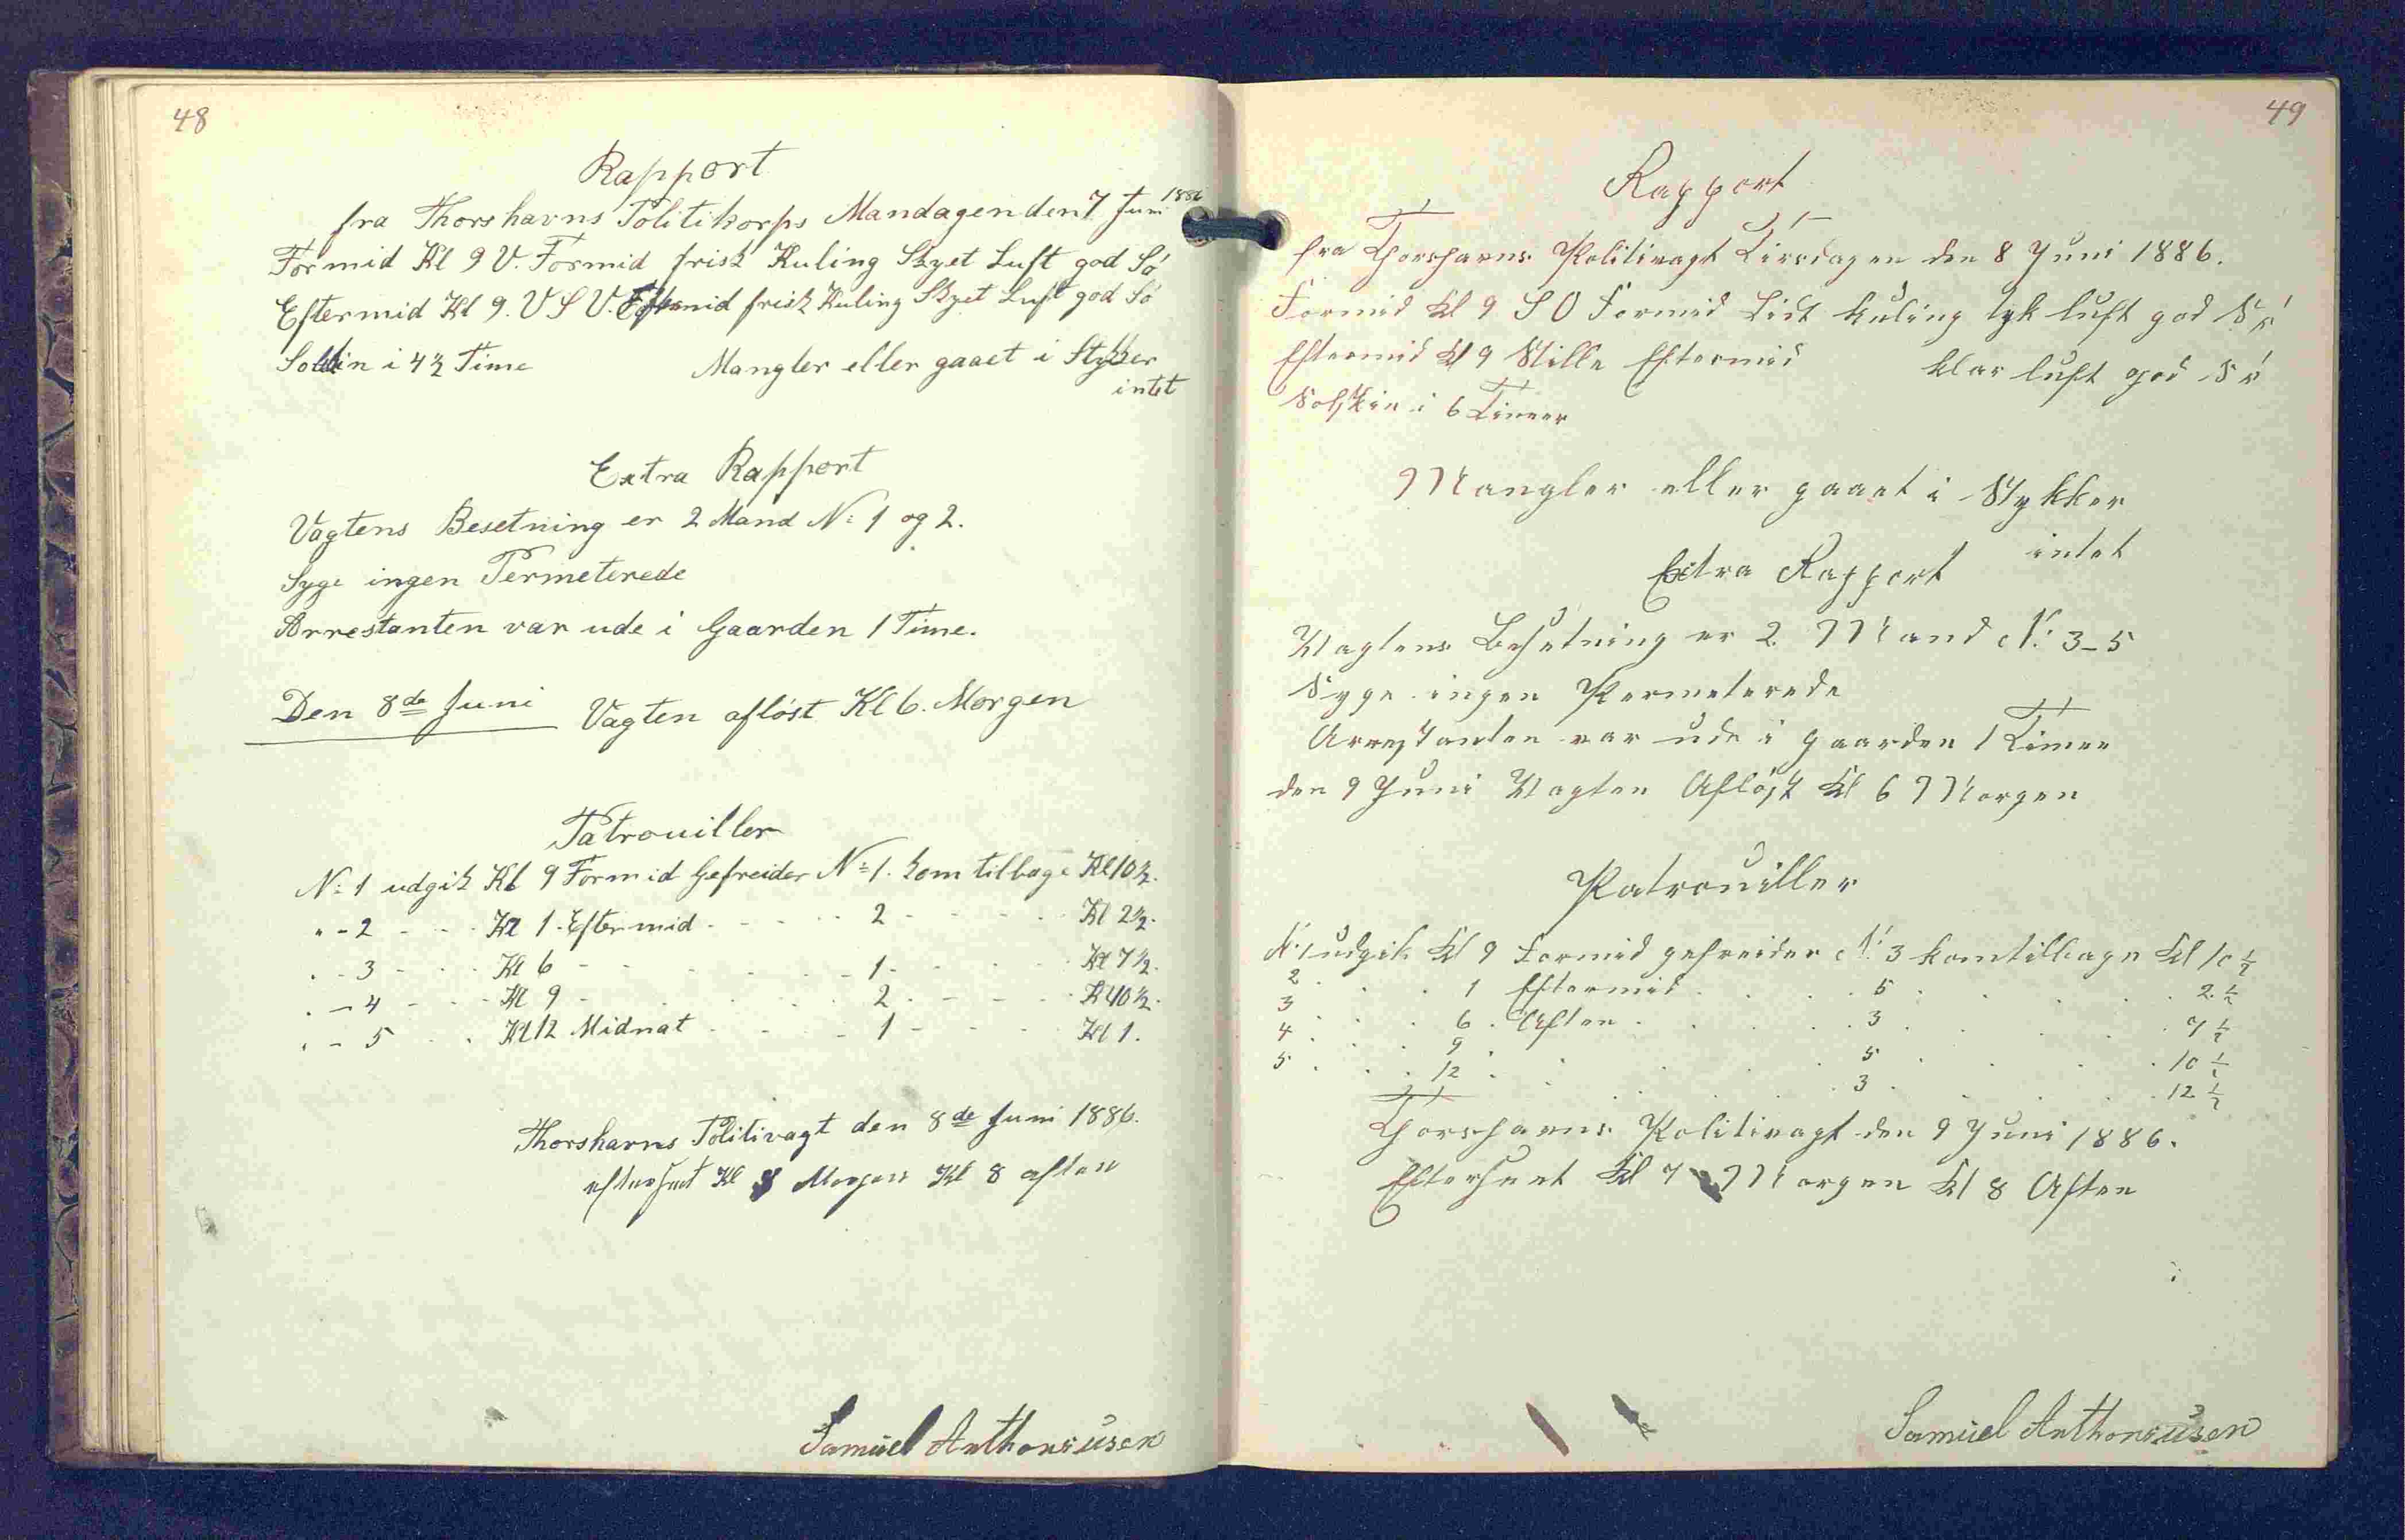 48
Rapport
fra Thorshavns Politikorps Mandagen den 7 Juni 1886
Formid Kl 9 V. Formid frisk Kuling Skyet Luft god Sö
Eftermid Kl 9. V S V. Eftermid frisk Kuling Skyet Luft god Sö
i 4½ Time Mangler eller gaaet i Stykker
intet
Extra Rapport
Vagtens Besetning er 2 Mand No 1 og 2.
Syge ingen Permeterede
Arrestanten var ude i Gaarden 1 Time.
Den 8de Juni Vagten aflöst Kl 6. Morgen
Patrouiller
No 1 udgik Kl 9 Formid Gefreider No 1. kom tilbage Kl 10½.
" - 2 - - - Kl 1. Eftermid - - - - 2 - - - - Kl 2½.
" - 3 - - - Kl 6 - - - - - - 1 - - - - Kl 7½.
" - 4 - - - Kl 9 - - - - - - 2 - - - - Kl 10½.
" - 5 - - Kl 12 Midnat - - - - 1 - - - - Kl 1.
Thorshavns Politivagt den 8de Juni 1886.
efterseet Kl 8 Morgen Kl 8 aften
Samuel Anthoniusen
49
Rapport
fra Thorshavns Politivagt Tirsdagen den 8 Juni 1886.
Formid Kl 9 S O Formid Lidt kuling tyk luft god Sö
Eftermid Kl 9 Stille Eftermid klar luft god Sö
Solskin i 6 Timer
Mangler eller gaaet i Stykker
intet
Extra Rapport
Vagtens Besetning er 2 Mand No 3-5
Syge ingen Permeterede
Arrestanten var ude i gaarden 1 Time
den 9 Juni Vagten Aflöst Kl 6 Morgen
Patrouiller
No 1 udgik Kl 9 Formid gefreider No 3 kom tilbage Kl 10½
2 . . . 1 Eftermid . . . 5 . . . . 2.½
3 . . . 6 . Aften . . . 3 . . . . 7½
4 . . . 9 . . . . 5 . . . . 10½
5 . . . 12 . . . . 3 . . . . 12½
Thorshavns Politivagt den 9 Juni 1886.
Efterseet Kl 7 Morgen Kl 8 Aften
Samuel Anthoniusen